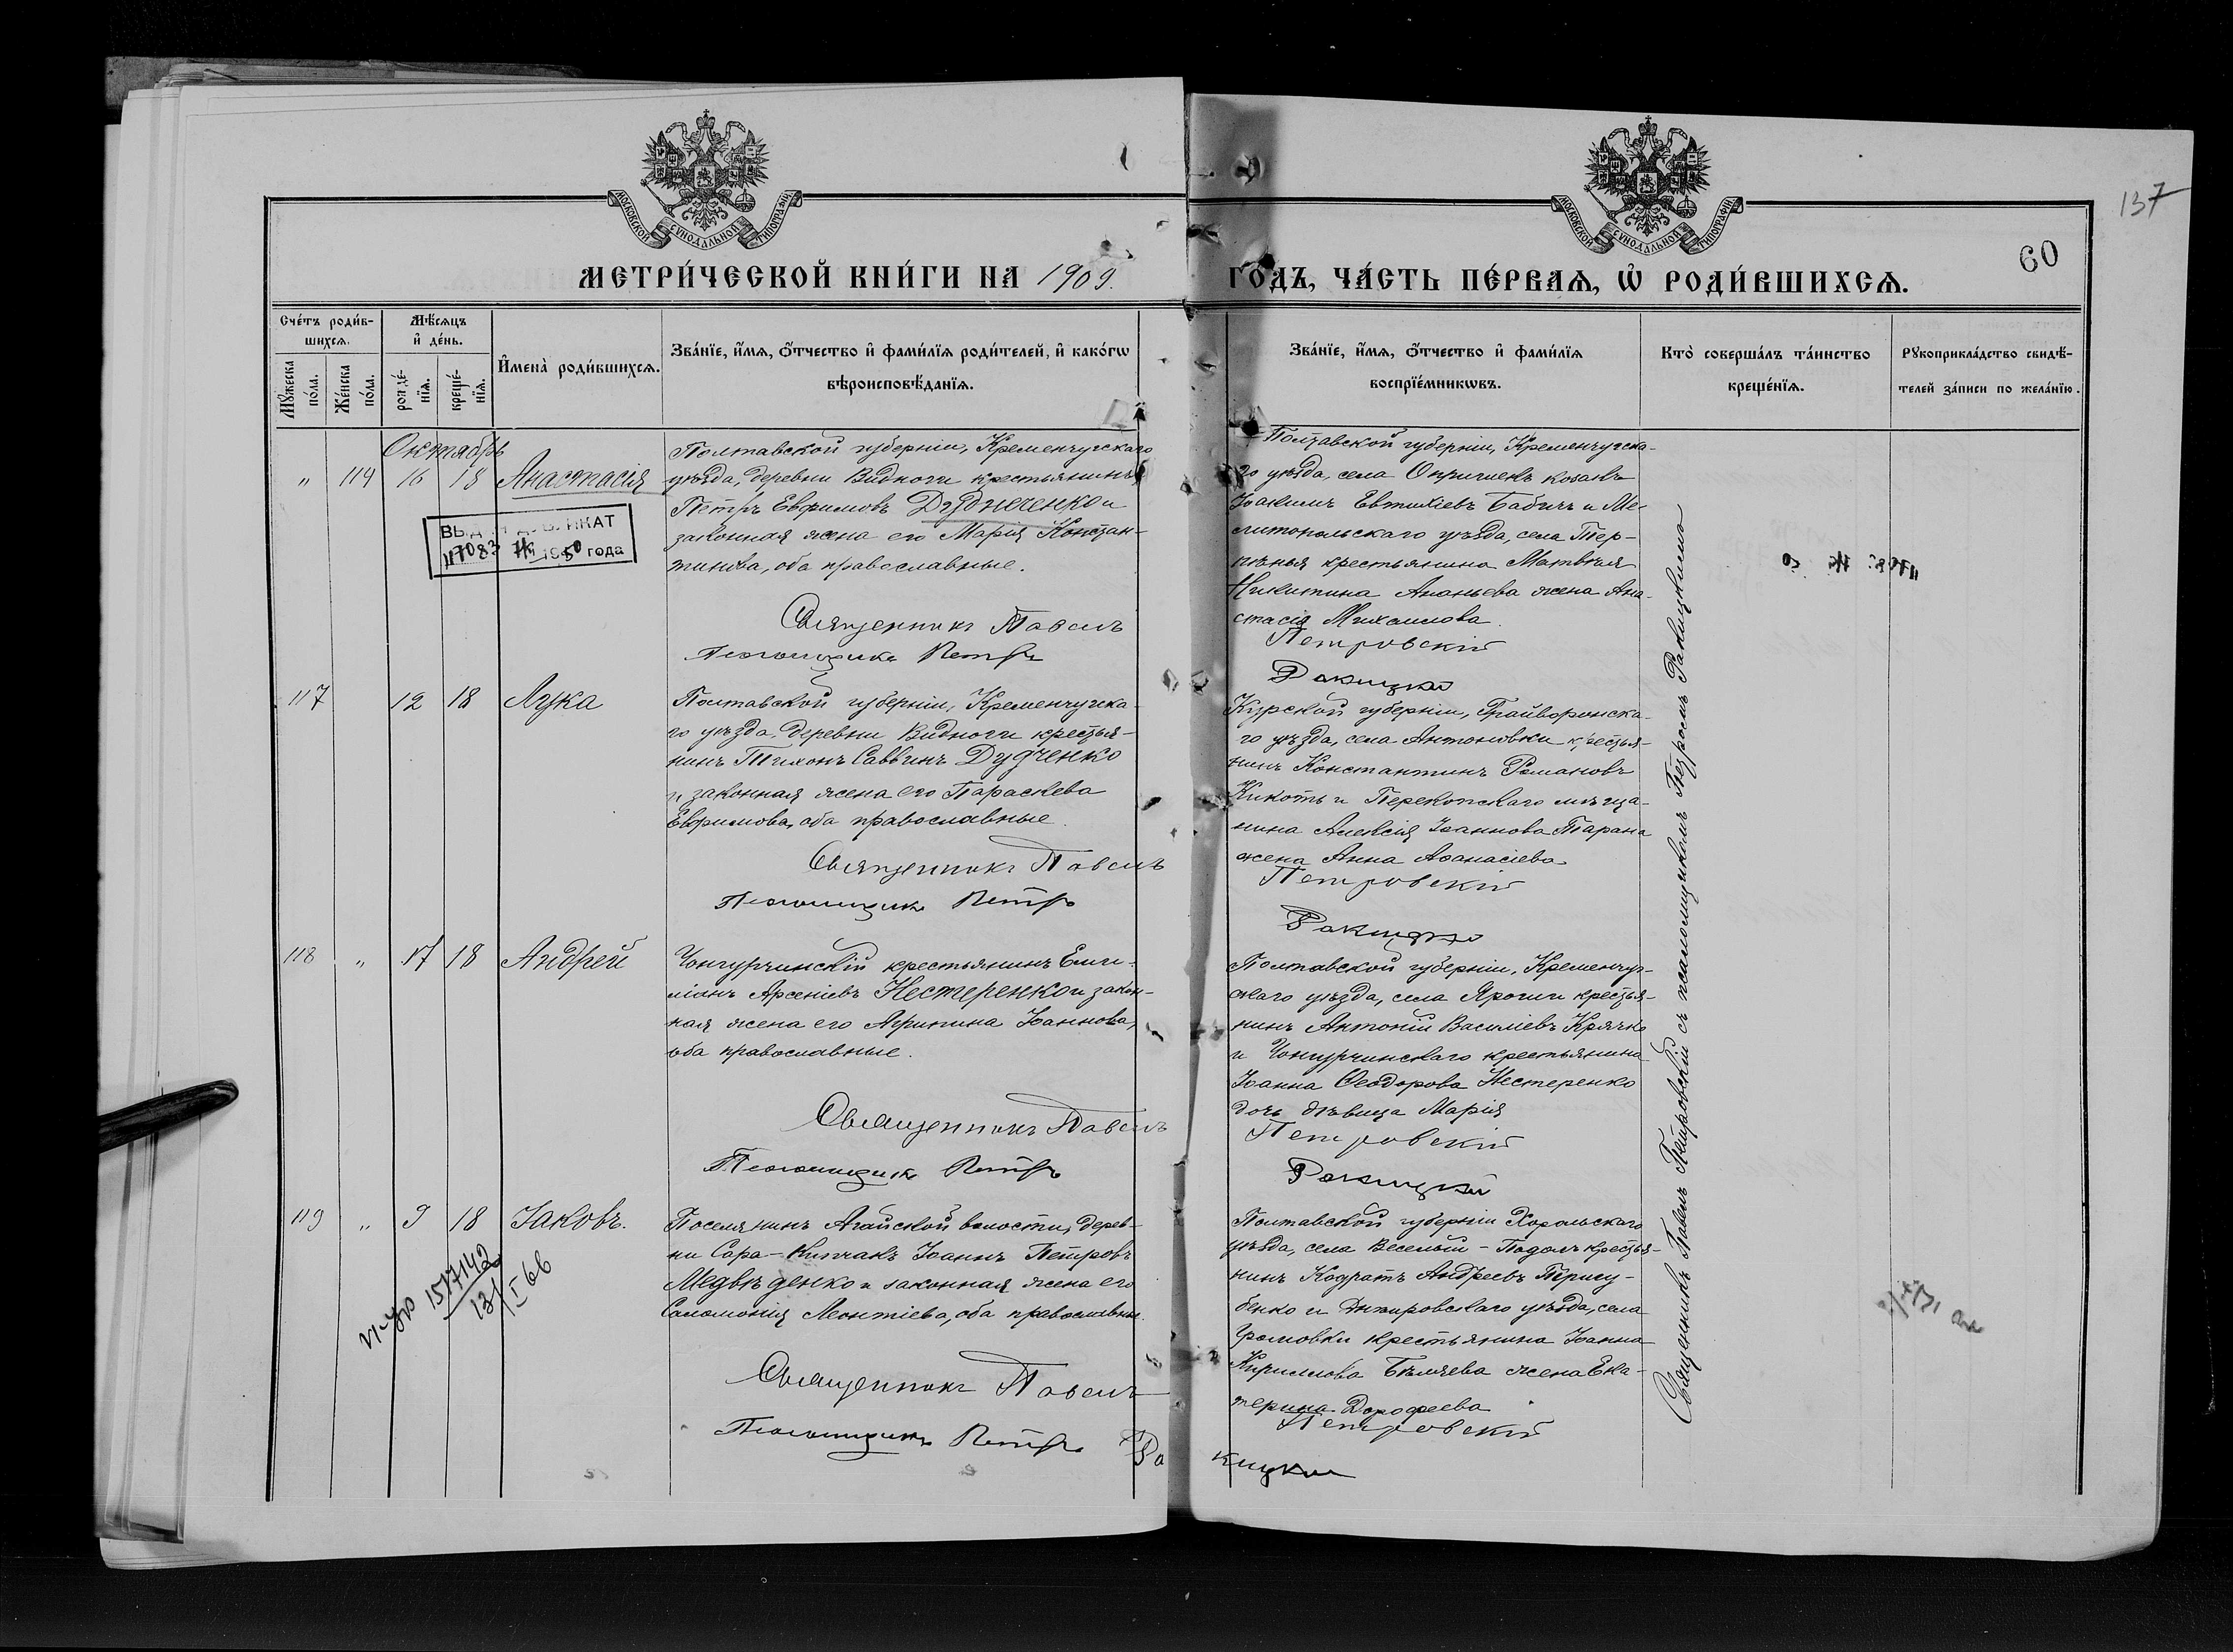 137
60
МОСКОВСКОЙ СѴНОДАЛЬНОЙ ТИПОГРАФІИ
МОСКОВСКОЙ СѴНОДАЛЬНОЙ ТИПОГРАФІИ
МЕТРИ́ЧЕСКОЙ КНИ́ГИ НА 1909.
ГО́ДЪ, ЧА́СТЬ ПЕ́РВАѦ, Ѡ҆ РОДИ́ВШИХСѦ.
Сче́тъ роди́в-
шихсѧ.
Мꙋ́жеска
по́ла.
Же́нска
по́ла.
Мѣ́сѧцъ
и҆ де́нь.
рожде́-
нїѧ.
креще́-
нїѧ.
И҆мена̀ роди́вшихсѧ.
Зва́нїе, и҆́мѧ, ѻ҆́тчество и҆ фами́лїѧ роди́телей, и҆ како́гѡ
вѣроисповѣ́данїѧ.
Зва́нїе, и҆́мѧ, ѻ҆́тчество и҆ фами́лїѧ
воспрїе́мникѡвъ.
Кто̀ соверша́лъ та́инство
креще́нїѧ.
Рꙋкоприкла́дство свидѣ́-
телей за́писи по жела́нїю.
Октябрь
" 114 16 18 Анастасія
Полтавской губерніи, Кременчугскаго
уѣзда, деревни Видноги крестьянинъ
Петръ Евфимовъ Дудниченко и
законная жена его Марія Констан-
тинова, оба православные.
Священникъ Павелъ
Псаломщикъ Петръ
Полтавской губерніи, Кременчугска-
го уѣзда, села Опришекъ козакъ
Іоакимъ Евтихіевъ Бабичъ и Ме-
литопольскаго уѣзда, села Тер-
пѣнья крестьянина Матвѣя
Никитина Ананьева жена Ана-
стасія Михаилова.
Петровскій
Ракицкій
ВЫДАН ДУБЛИКАТ
117083 1950 года
117 12 18 Лука
Полтавской губерніи, Кременчугска-
го уѣзда, деревни Видноги крестья-
нинъ Тихонъ Саввинъ Дудченко
и законная жена его Параскева
Евфимова, оба православные.
Священникъ Павелъ
Псаломщикъ Петръ
Курской губерніи, Грайворонска-
го уѣзда, села Антоновки крестья-
нинъ Константинъ Романовъ
Кикоть и Перекопскаго мѣща-
нина Алексія Іоаннова Тарана
жена Анна Аѳанасіева.
Петровскій
Ракицкій
118 " 17 18 Андрей
Чонгурчинскій крестьянинъ Еми-
ліанъ Арсеніевъ Нестеренко и закон-
ная жена его Агрипина Іоаннова,
оба православные.
Священникъ Павелъ
Псаломщикъ Петръ
Полтавской губерніи, Кременчуг-
скаго уѣзда, села крестья-
нинъ Антоній Василіевъ Крячко
и Чонгурчинскаго крестьянина
Іоанна Ѳеодорова Нестеренко
дочь дѣвица Марія
Петровскій
Ракицкій
119 " 9 18 Іаковъ.
Поселянинъ Агайской волости, дерев-
ни Сара-Кипчакъ Іоаннъ Петровъ
Медвѣденко и законная жена его
Саломонія Леонтіева, оба православные.
Священникъ Павелъ
Псаломщикъ Петръ Ра
Полтавской губерніи Хорольскаго
уѣзда, села Веселый-Подолъ крестья-
нинъ Кодратъ Андреевъ
бенко и Днѣпровскаго уѣзда, села
Громовки крестьянина Іоанна
Кириллова Бѣляева жена Ека-
терина Дороѳеева.
Петровскій
кицкій
1517142
13/I 66
Священникъ Павелъ Петровскій съ псаломщикомъ Петромъ Ракицкимъ